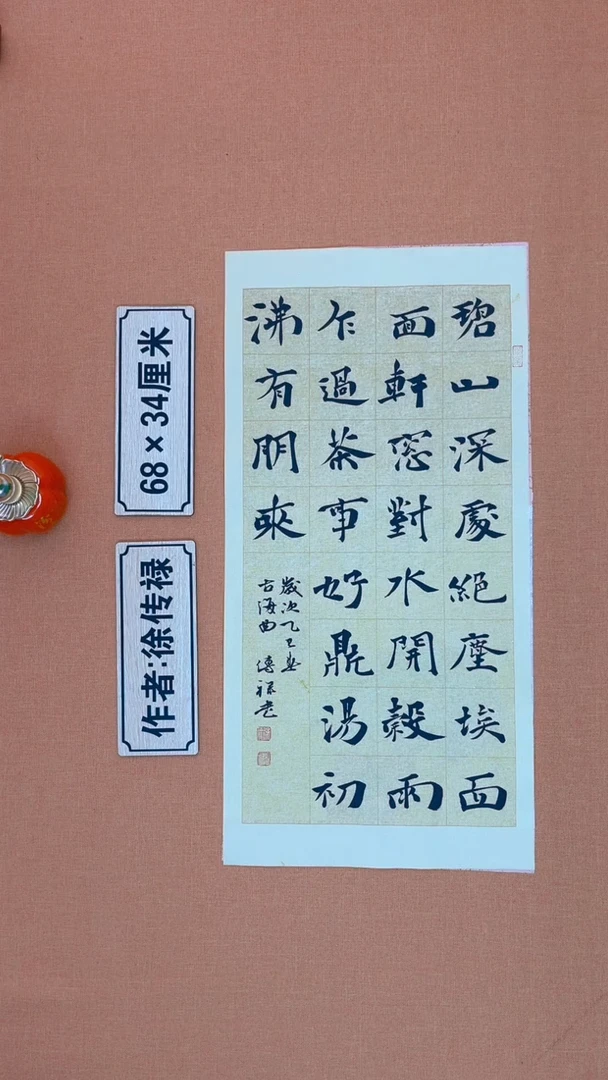 碧山深處絕塵埃面
面軒窓對水開穀雨
乍過茶事好鼎湯初
沸有朋來
歲次乙巳
古海曲 傳祿書
68×34厘米
作者:徐传禄